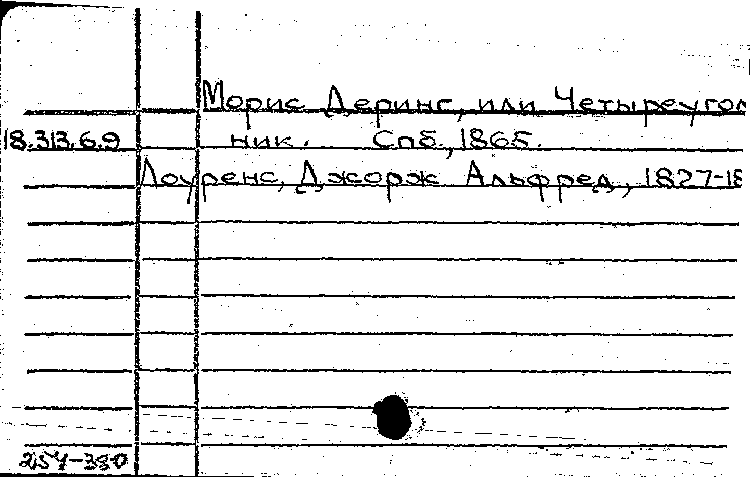 Морис Деринг, или Четыреугол
18.313.6.9 ник. Спб., 1865.
Лоуренс, Джорж Альфред, 1827-18
254-380